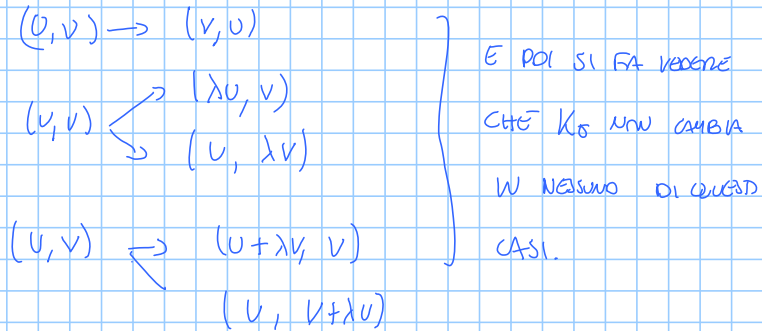 (U,V) → (V,U)
(U,V) → (λU, V)
(U, λV)
(U,V) → (U+λV, V)
(U, V+λU)
E POI SI FA VEDERE
CHE Kσ NON CAMBIA
IN NESSUNO DI QUESTI
CASI.